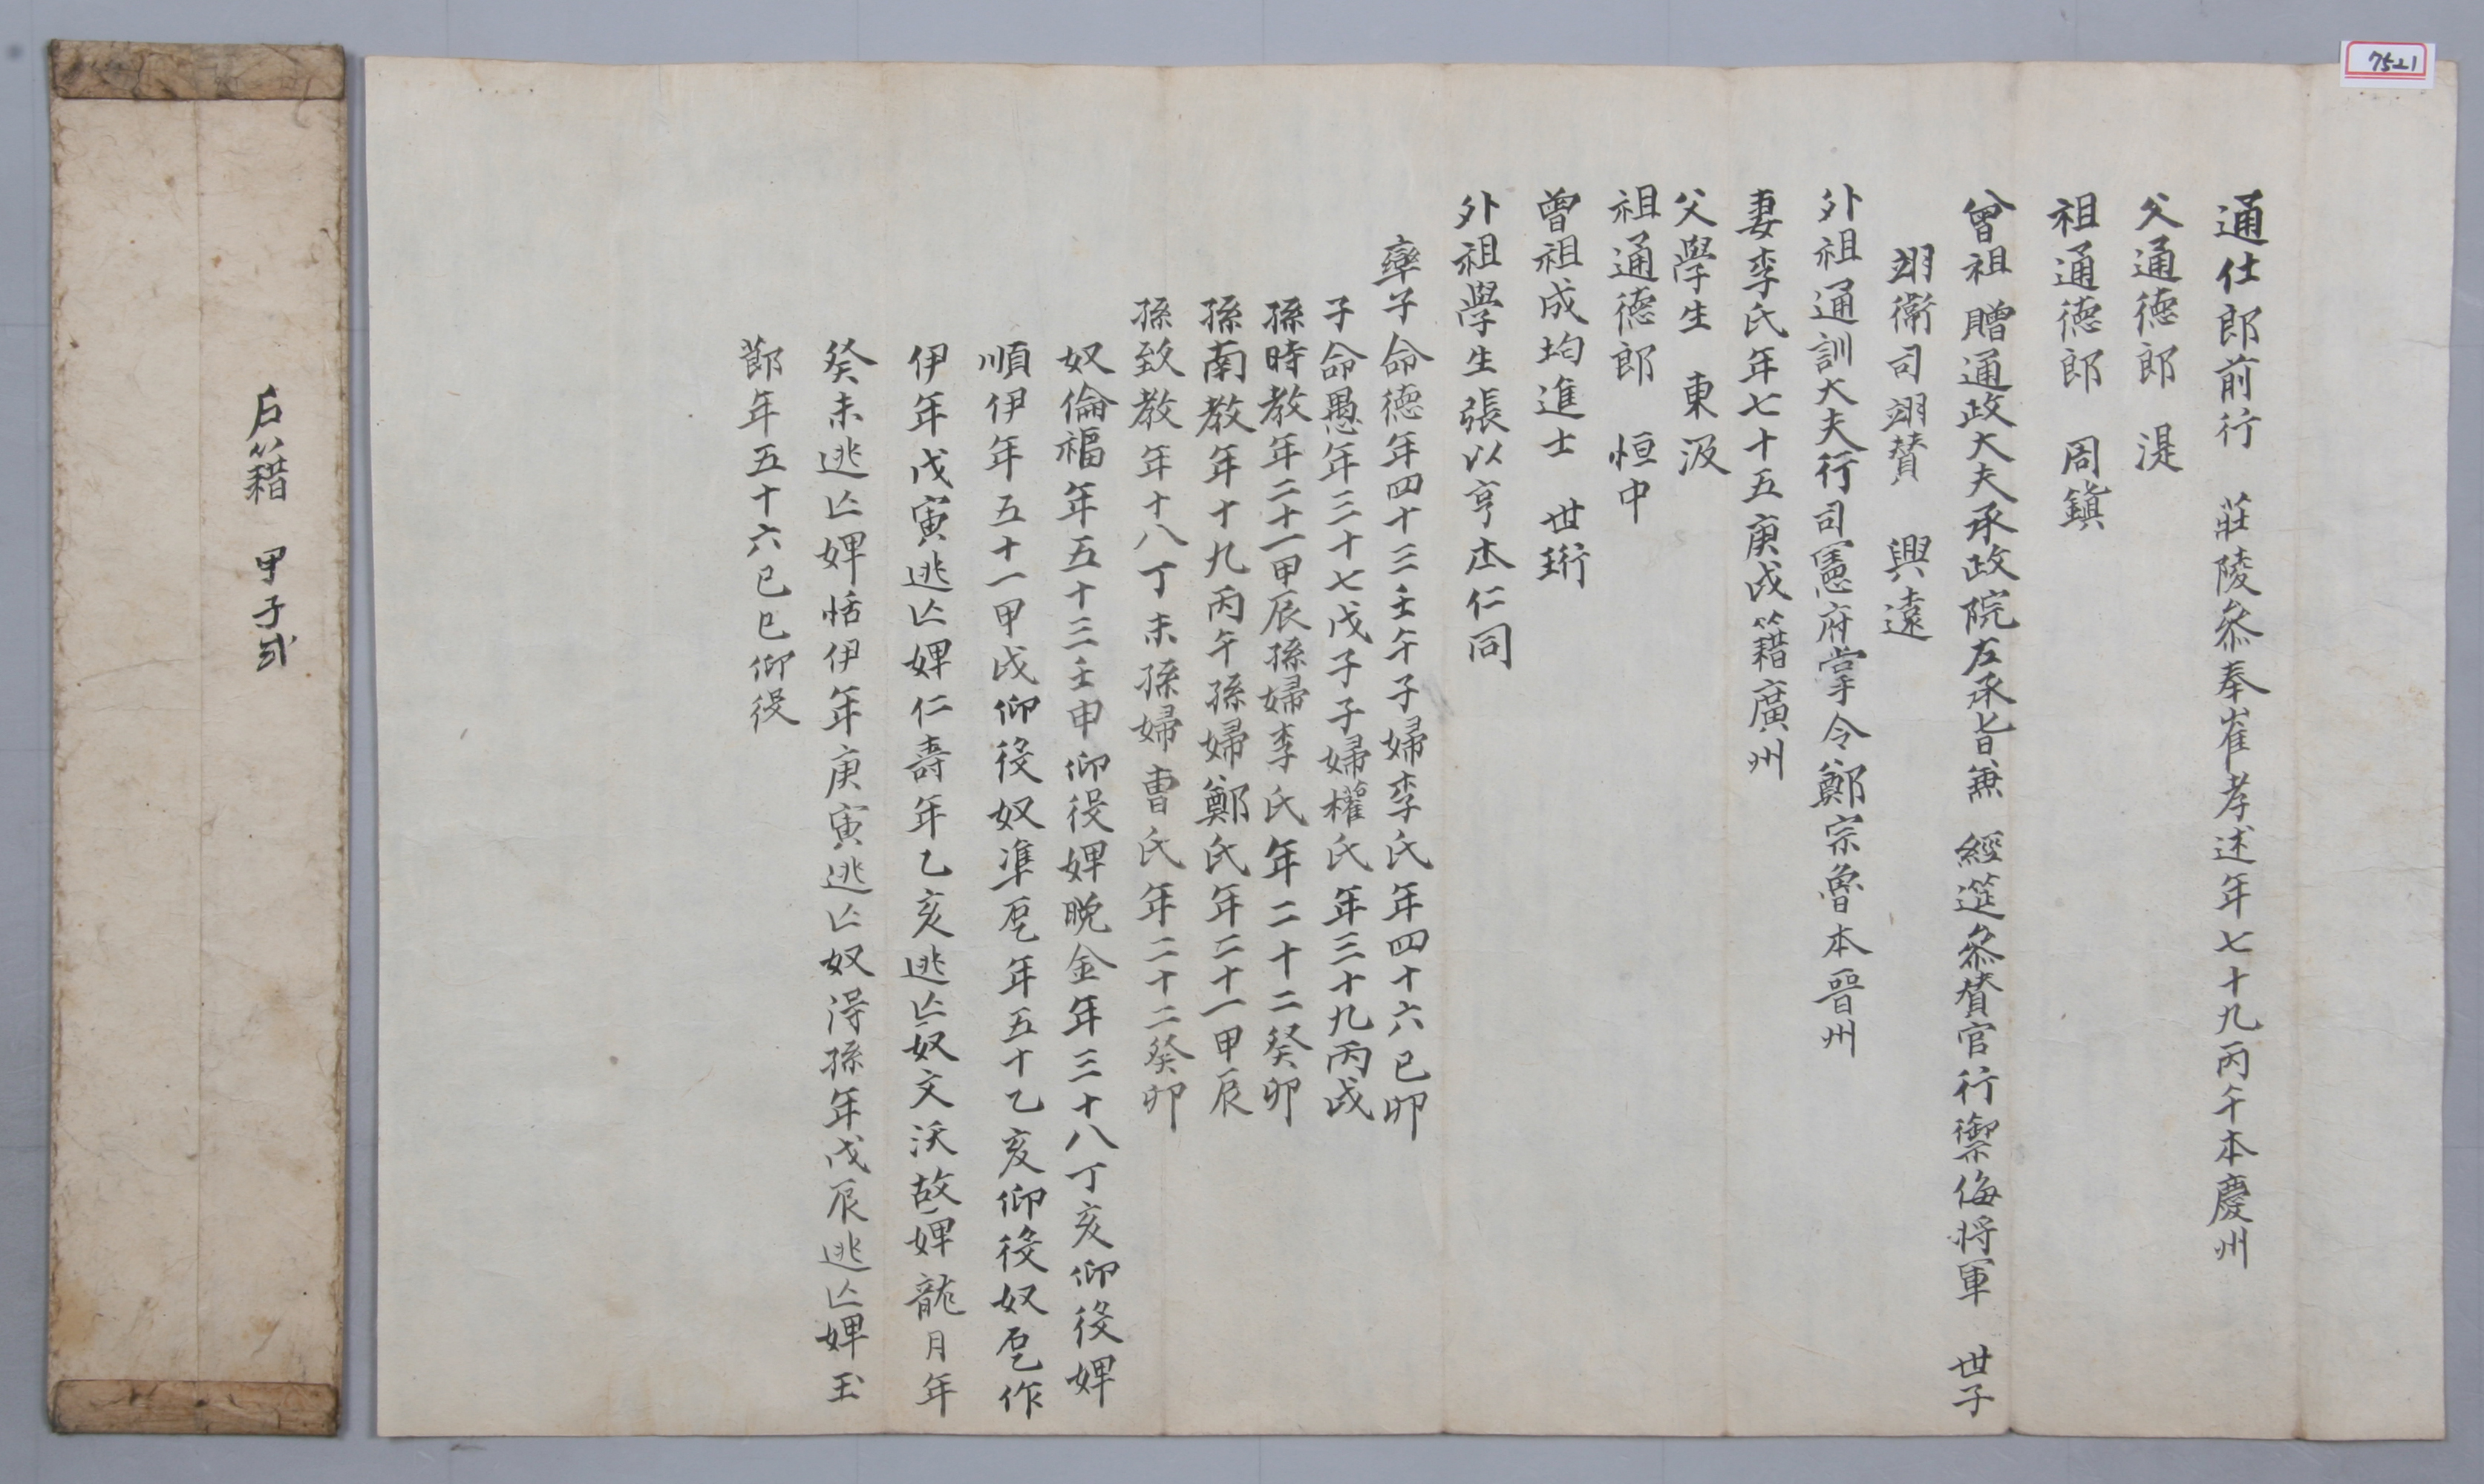 7521
通仕郎前行 莊陵叅奉崔孝述年七十九丙午本慶州
父通徳郎 湜
祖通徳郎 周鎮
曾祖 贈通政大夫承政院左承旨兼 經筵叅賛官行禦侮将軍 世子
翊衛司翊賛 興遠
外祖通訓大夫行司憲府掌令鄭宗魯本晉州
妻李氏年七十五庚戌籍廣州
父學生 東汲
祖通徳郎 恒中
曾祖成均進士 世珩
外祖學生張以亨本仁同
率子命徳年四十三壬午子婦李氏年四十六己卯
子命愚年三十七戊子子婦權氏年三十九丙戌
孫時教年二十一甲辰孫婦李氏年二十二癸卯
孫南教年十九丙午孫婦鄭氏年二十一甲辰
孫致教年十八丁未孫婦曹氏年二十二癸卯
奴倫福年五十三壬申仰役婢晩金年三十八丁亥仰役婢
順伊年五十一甲戌仰役奴準㐗年五十乙亥仰役奴㐗作
伊年戊寅逃亡婢仁壽年乙亥逃亡奴文沃故婢龍月年
癸未逃亡婢恬伊年庚寅逃亡奴得孫年戊辰逃亡婢玉
節年五十六己巳仰役
戶籍 甲子式